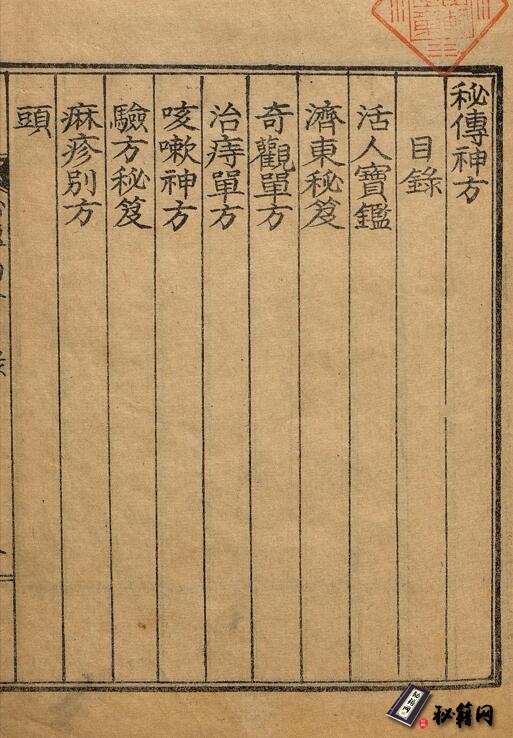 秘傳神方
目錄
活人寶鑑
濟東秘笈
奇觀單方
治痔單方
咳嗽神方
驗方秘笈
麻疹別方
頭
秘籍网